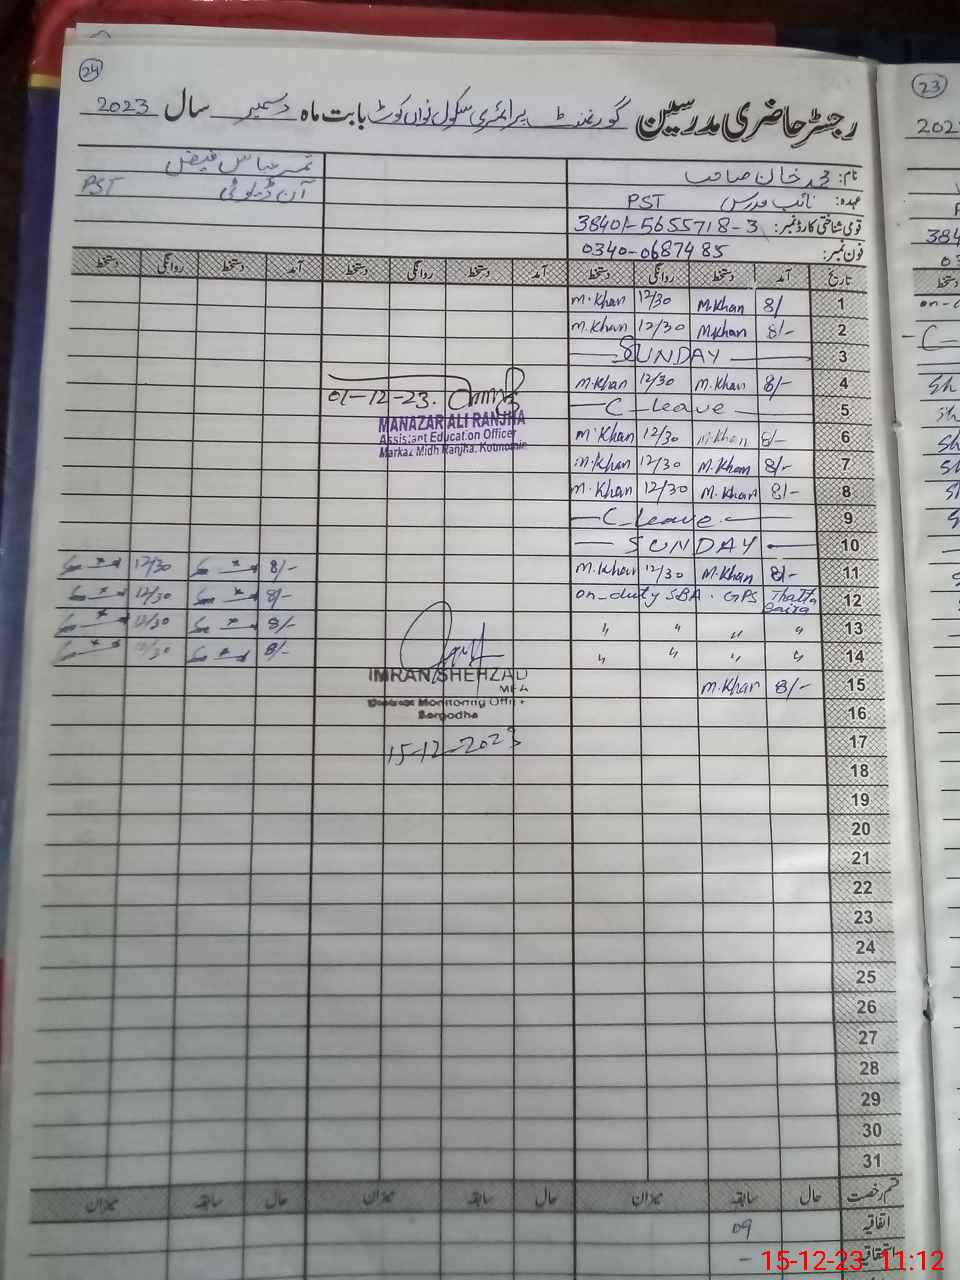 24
رجسٹر حاضری مدرسین گورنمنٹ پرائمری سکول نواں کوٹ بابت ماہ دسمبر سال 2023
نام: محمد خان صاحب
عہدہ: نائب مدرس PST
قومی شناختی کارڈ نمبر: 38401-5655718-3
فون نمبر: 0340-0687485
ثمر عباس فیض
آن ڈیوٹی PST
تاریخ آمد دستخط روانگی دستخط آمد دستخط روانگی دستخط آمد دستخط روانگی دستخط
1 8/ M.Khan 12/30 M.Khan
2 8/- M.Khan 12/30 M.Khan
3 SUNDAY
4 8/- M.Khan 12/30 M.Khan
5 C_leave
6 8/- M.Khan 12/30 M.Khan
7 8/- M.Khan 12/30 M.Khan
8 8/- M.Khan 12/30 M.Khan
9 C_leave
10 SUNDAY
11 8/- M.Khan 12/30 M.Khan 8/- 12/30
12 on_duty SBA. GPS Thatta 8/- 12/30
13 " " " " 8/- 12/30
14 " " " " 8/- 12/30
15 8/- M.Khan
16
17
18
19
20
21
22
23
24
25
26
27
28
29
30
31
01-12-23.
MANAZAR ALI RANJHA
Assistant Education Officer
Markaz Midh Ranjha, Kotmomin
IMRAN SHEHZAD
MEA
District Monitoring Officer
Sargodha
15-12-2023
قسم رخصت حال سابقہ میزان حال سابقہ میزان حال سابقہ میزان
اتفاقیہ 09
استحقاقیہ -
23
202
384
03
دستخط
on-d
C
Sh
Sh
Sh
Sh
15-12-23 11:12